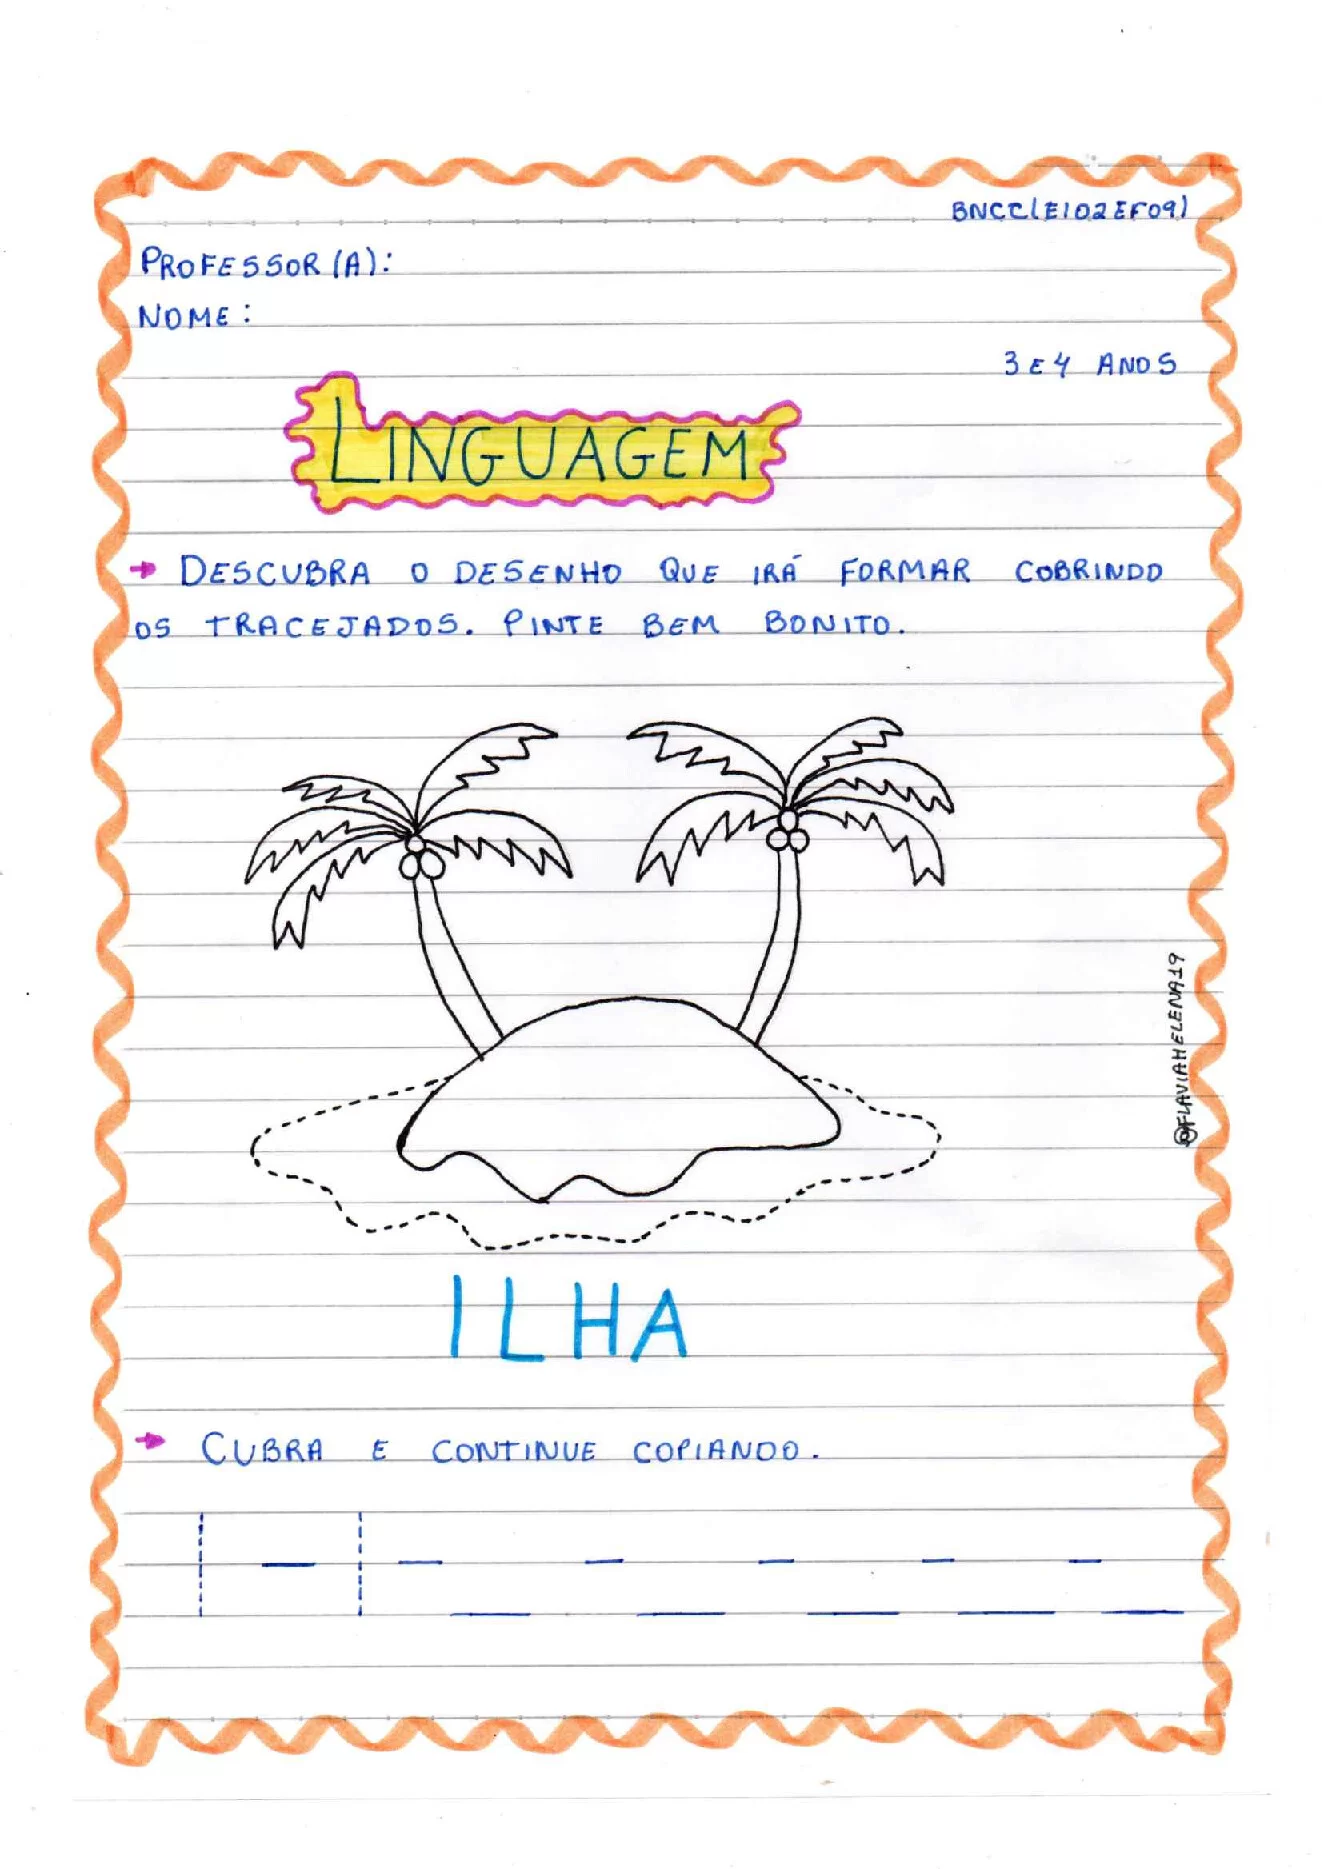 BNCC(EI02EF09)
PROFESSOR(A):
NOME:
3 E 4 ANOS
LINGUAGEM
DESCUBRA O DESENHO QUE IRÁ FORMAR COBRINDO
OS TRACEJADOS. PINTE BEM BONITO.
@FLAVIAHELENA19
ILHA
CUBRA E CONTINUE COPIANDO.
I - I - - - - -